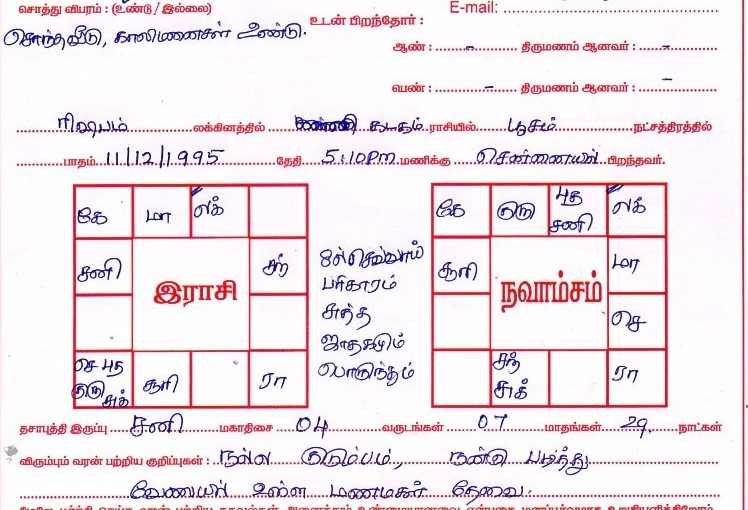 சொத்து விபரம் : (உண்டு / இல்லை) E-mail:
சொந்தவீடு, காலிமனைகள் உண்டு. உடன் பிறந்தோர் :
ஆண் : - திருமணம் ஆனவர் : -
பெண் : - திருமணம் ஆனவர் : -
ரிஷபம் லக்கினத்தில் கடகம் ராசியில் பூசம் நட்சத்திரத்தில்
பாதம் 11/12/1995 தேதி 5:10Pm மணிக்கு சென்னையில் பிறந்தவர்.
கே மா லக்
சனி சந்
இராசி
செ புத குரு சுக் சூரி ரா
8ல் செவ்வாய்
பரிகாரம்
சுத்த
ஜாதகமும்
பொருந்தும்
கே குரு புத சனி லக்
சூரி மா
நவாம்சம்
செ
சந் சுக் ரா
தசாபுத்தி இருப்பு சனி மகாதிசை 04 வருடங்கள் 07 மாதங்கள் 29 நாட்கள்
விரும்பும் வரன் பற்றிய குறிப்புகள் : நல்ல குடும்பம், நன்கு படித்து
வேலையில் உள்ள மணமகள் தேவை.